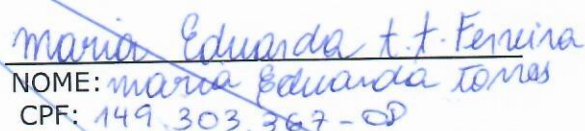 Maria Eduarda t.t. Ferreira
NOME: Maria Eduarda Torres
CPF: 149.303.367-08